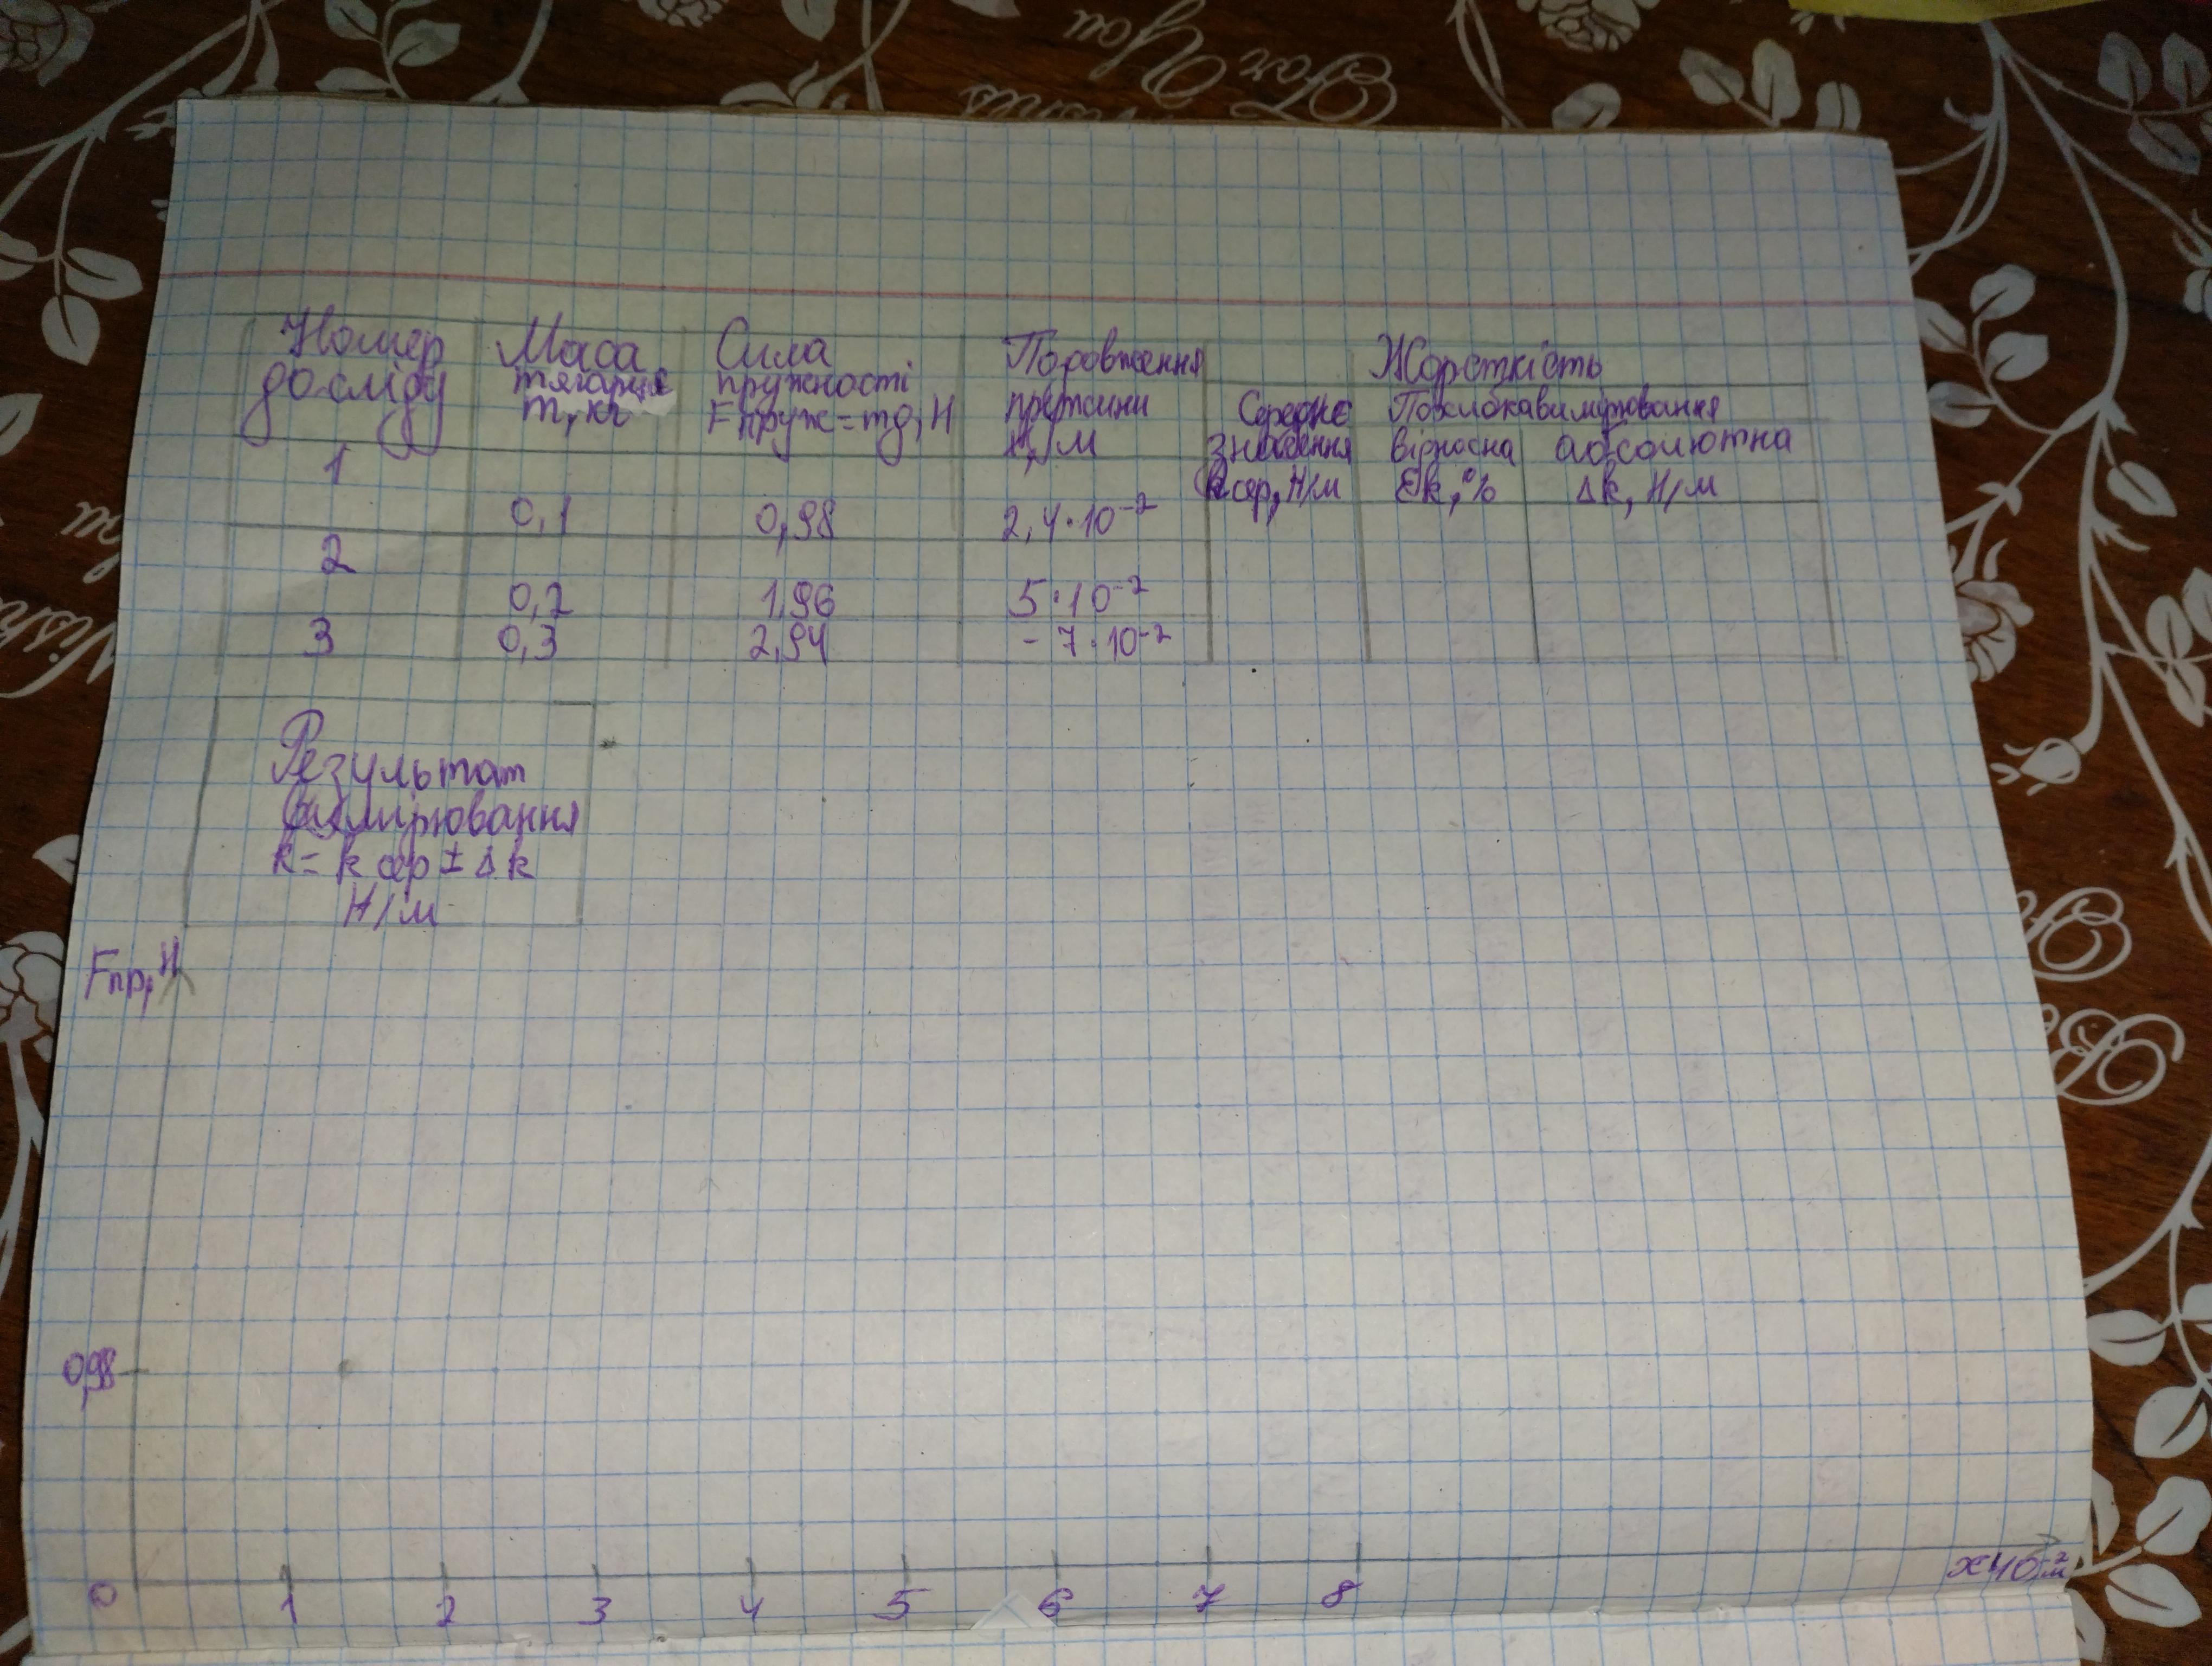 Номер
досліду
Маса
тягарця
m, кг
Сила
пружності
Fпруж = mg, H
Подовження
пружини
м
Жорсткість
Середнє
значення
k сер, Н/м
Похибка вимірювання
відносна
Ɛk, %
абсолютна
Δk, Н/м
1
0,1
0,98
2,4·10⁻²
2
0,2
1,96
5·10⁻²
3
0,3
2,94
- 7·10⁻²
Результат
вимірювання
k = k сер ± Δk
Н/м
Fпр, Н
0,98
0 1 2 3 4 5 6 7 8
For You